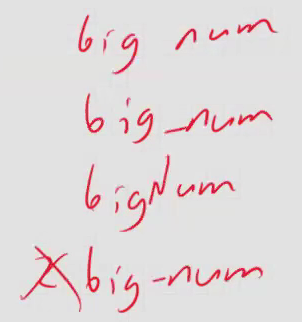 big num
big_num
bigNum
big-num